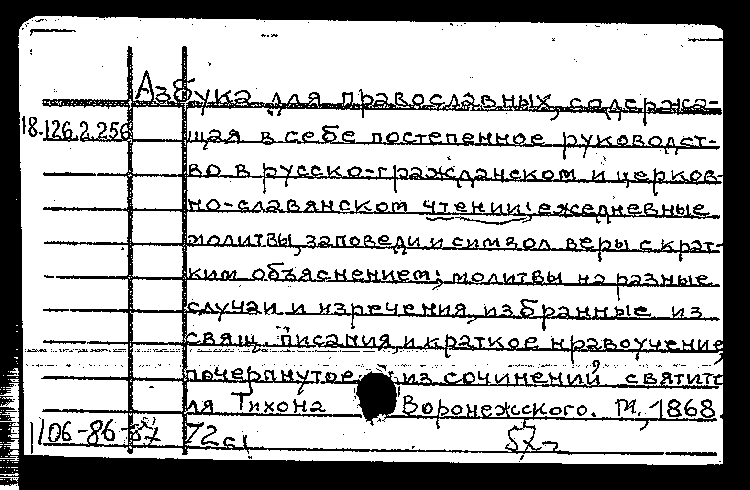 Азбука для православных, содержа-
18.126.2.256 щая в себе постепенное руководст-
во в русско-гражданском и церков-
но-славянском чтении; ежедневные
молитвы, заповеди и символ веры с крат-
ким объяснением; молитвы на разные
случаи и изречения, избранные из
свящ. писания, и краткое нравоучение,
почерпнутое из сочинений святите
ля Тихона Воронежского. М., 1868.
1106-86 72 с.